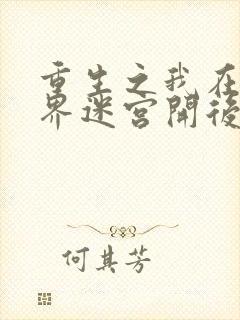 重生之我在
界迷宫開後
何其芳